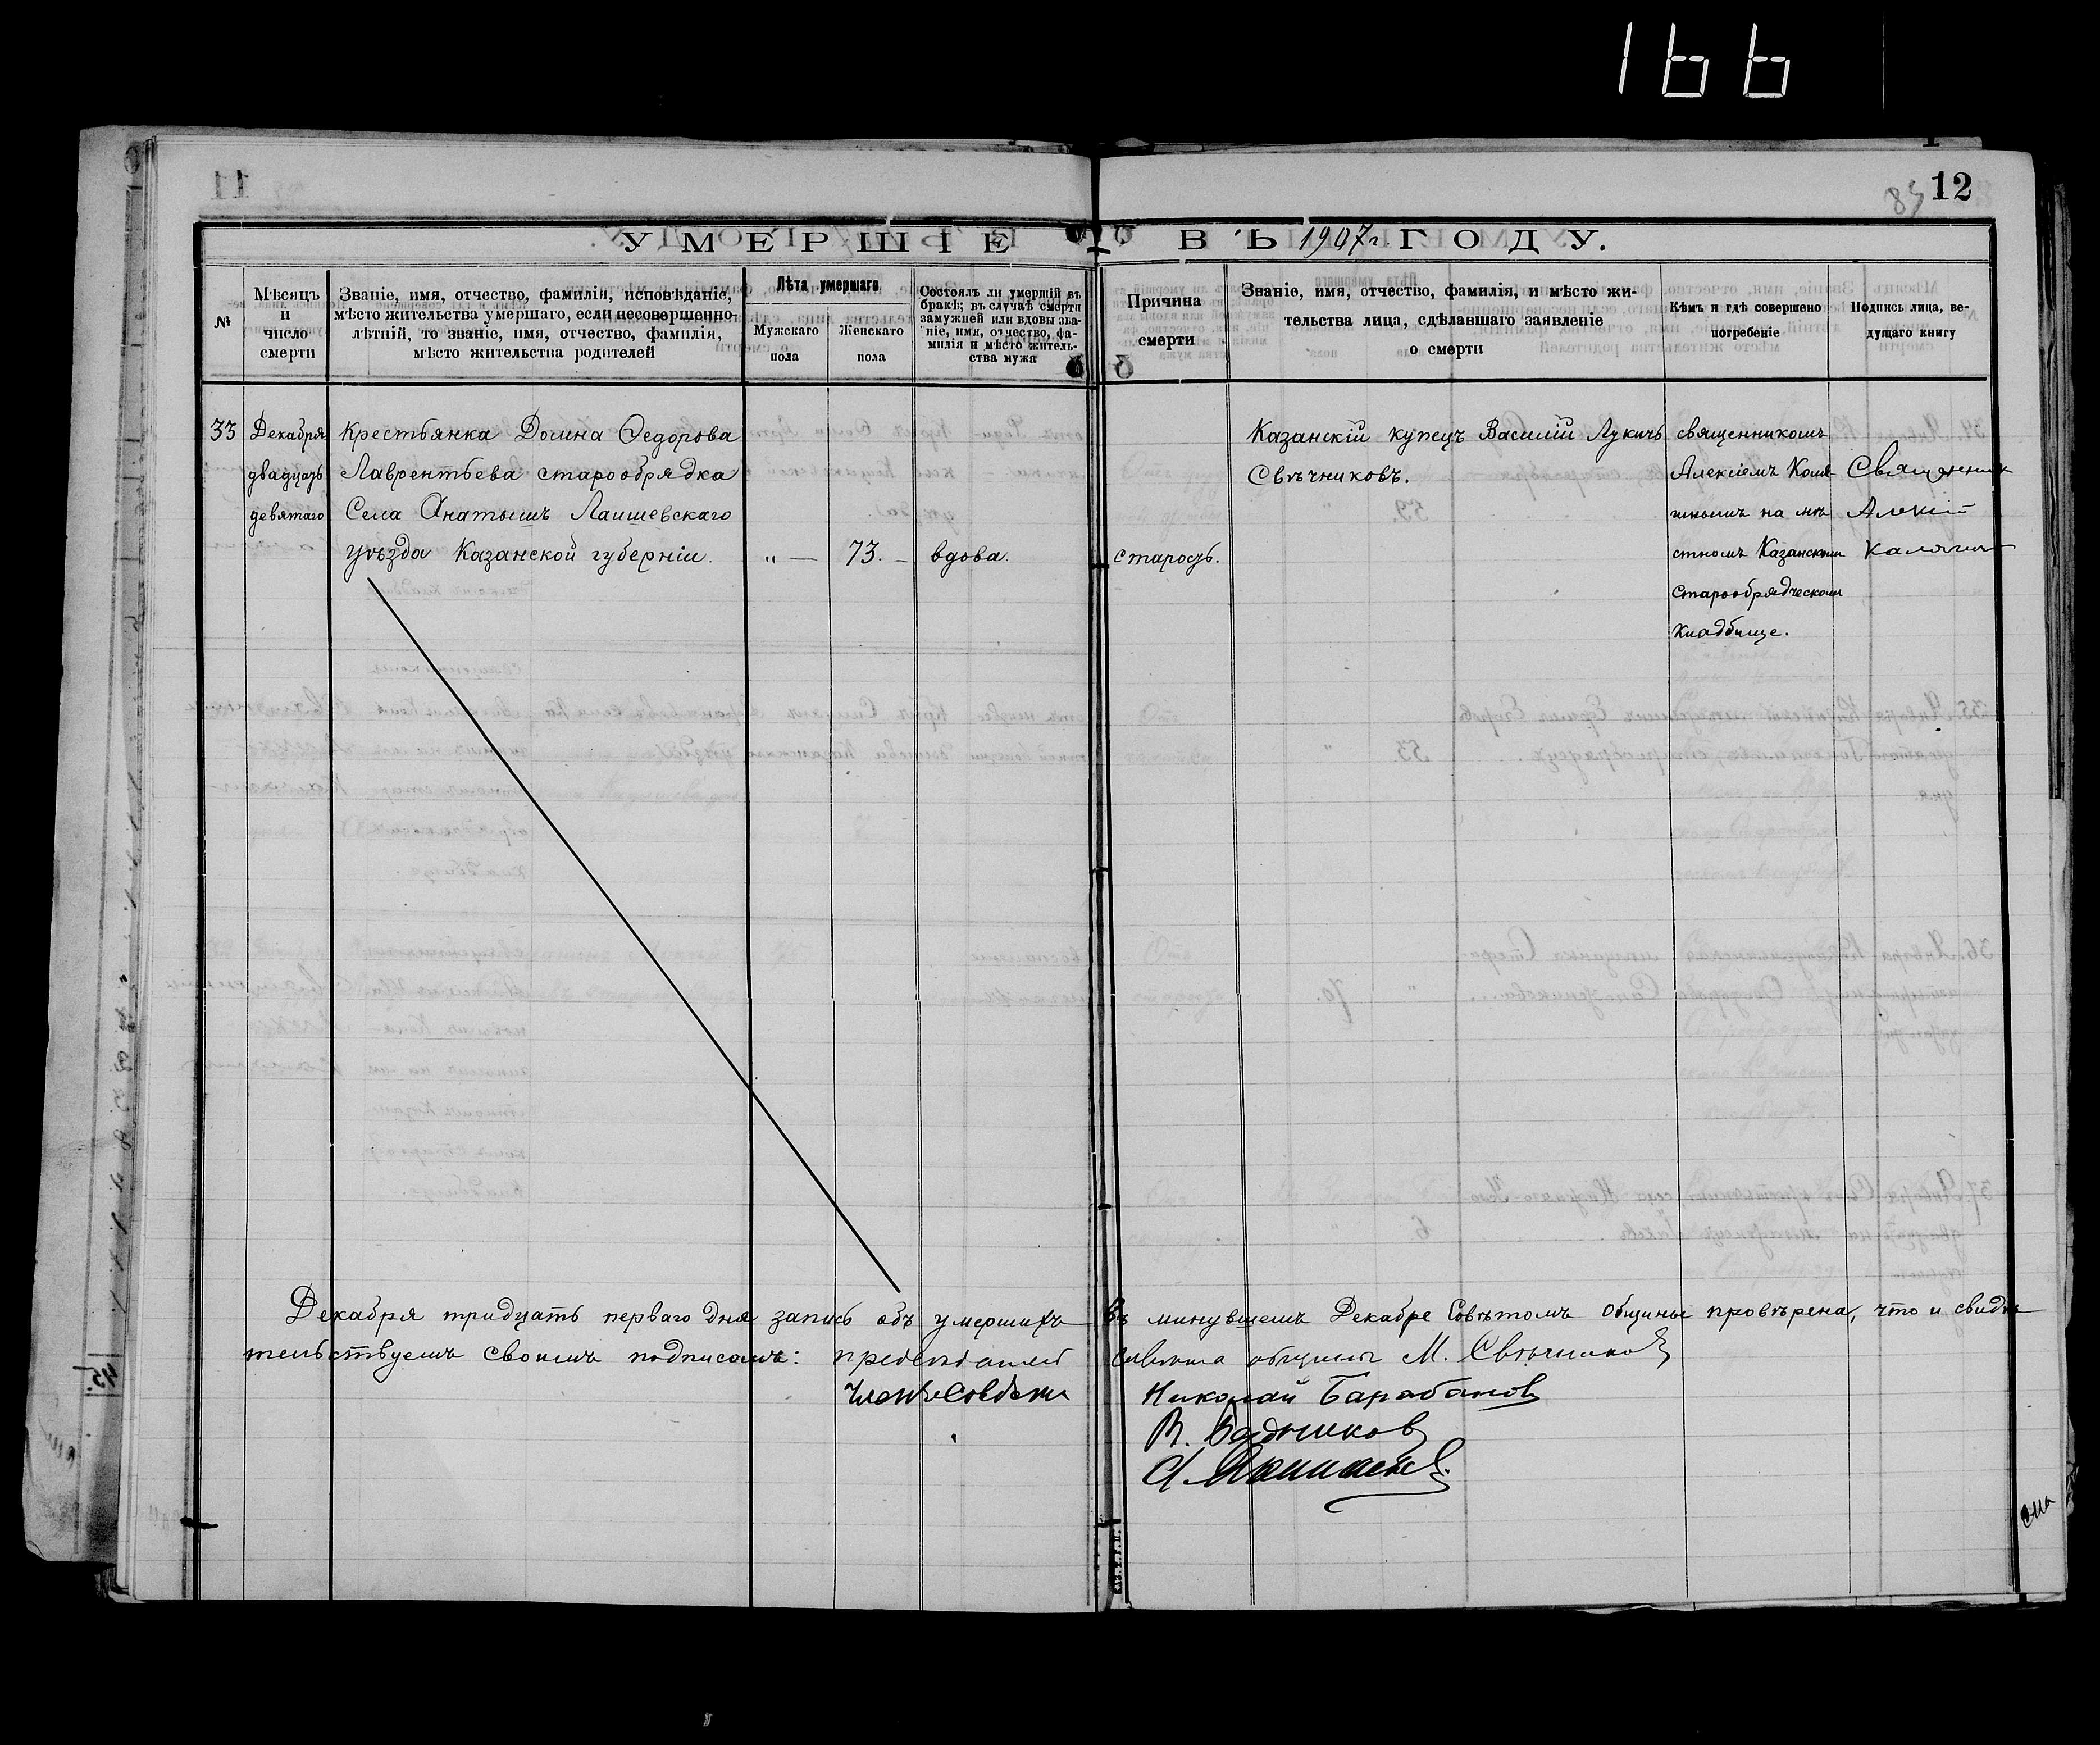 166
12
УМЕРШІЕ ВЪ 1907 г. ГОДУ.
№
Мѣсяцъ
и
число
смерти
Званіе, имя, отчество, фамилія, исповѣданіе,
мѣсто жительства умершаго, если несовершенно-
лѣтній, то званіе, имя, отчество, фамилія,
мѣсто жительства родителей
Лѣта умершаго
Мужскаго
пола
Женскаго
пола
Состоялъ ли умершій въ
бракѣ; въ случаѣ смерти
замужней или вдовы зва-
ніе, имя, отчество, фа-
милія и мѣсто житель-
ства мужа
Причина
смерти
Званіе, имя, отчество, фамилія, и мѣсто жи-
тельства лица, сдѣлавшаго заявленіе
о смерти
Кѣмъ и гдѣ совершено
погребеніе
Подпись лица, ве-
дущаго книгу
33
Декабря
двадцать
девятаго
Крестьянка Домна Ѳедорова
Лаврентьева старообрядка
Села Анатышъ Лаишевскаго
уѣзда Казанской губерніи.
„ —
73. –
вдова.
старость.
Казанскій купецъ Василій Лукичъ
Свѣчниковъ.
священникомъ
Алексіемъ Каля-
гинымъ на мѣ
стномъ Казанскомъ
Старообрядческомъ
кладбище.
Священник
Алексій
Калягинъ
Декабря тридцать перваго дня запись объ умершихъ въ минувшемъ Декабре Совѣтомъ Общины провѣрена, что и свидѣ
тельствуемъ своимъ подписомъ: председатель совета общины М. Свѣчников
Члены Совета Николай Барабанов